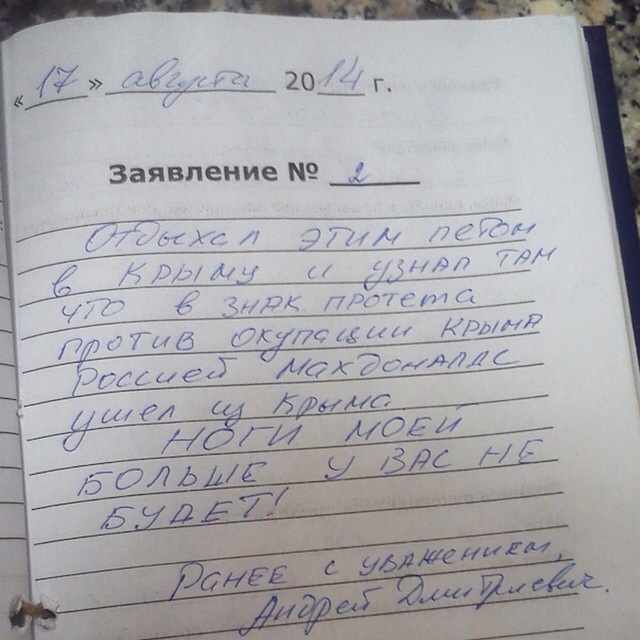 «17» августа 2014 г.
Заявление № 2
Отдыхал этим летом
в Крыму и узнал там
что в знак протеста
против окупации Крыма
Россией Макдоналдс
ушел из Крыма
НОГИ МОЕЙ
БОЛЬШЕ У ВАС НЕ
БУДЕТ!
Ранее с уважением,
Андрей Дмитриевич.